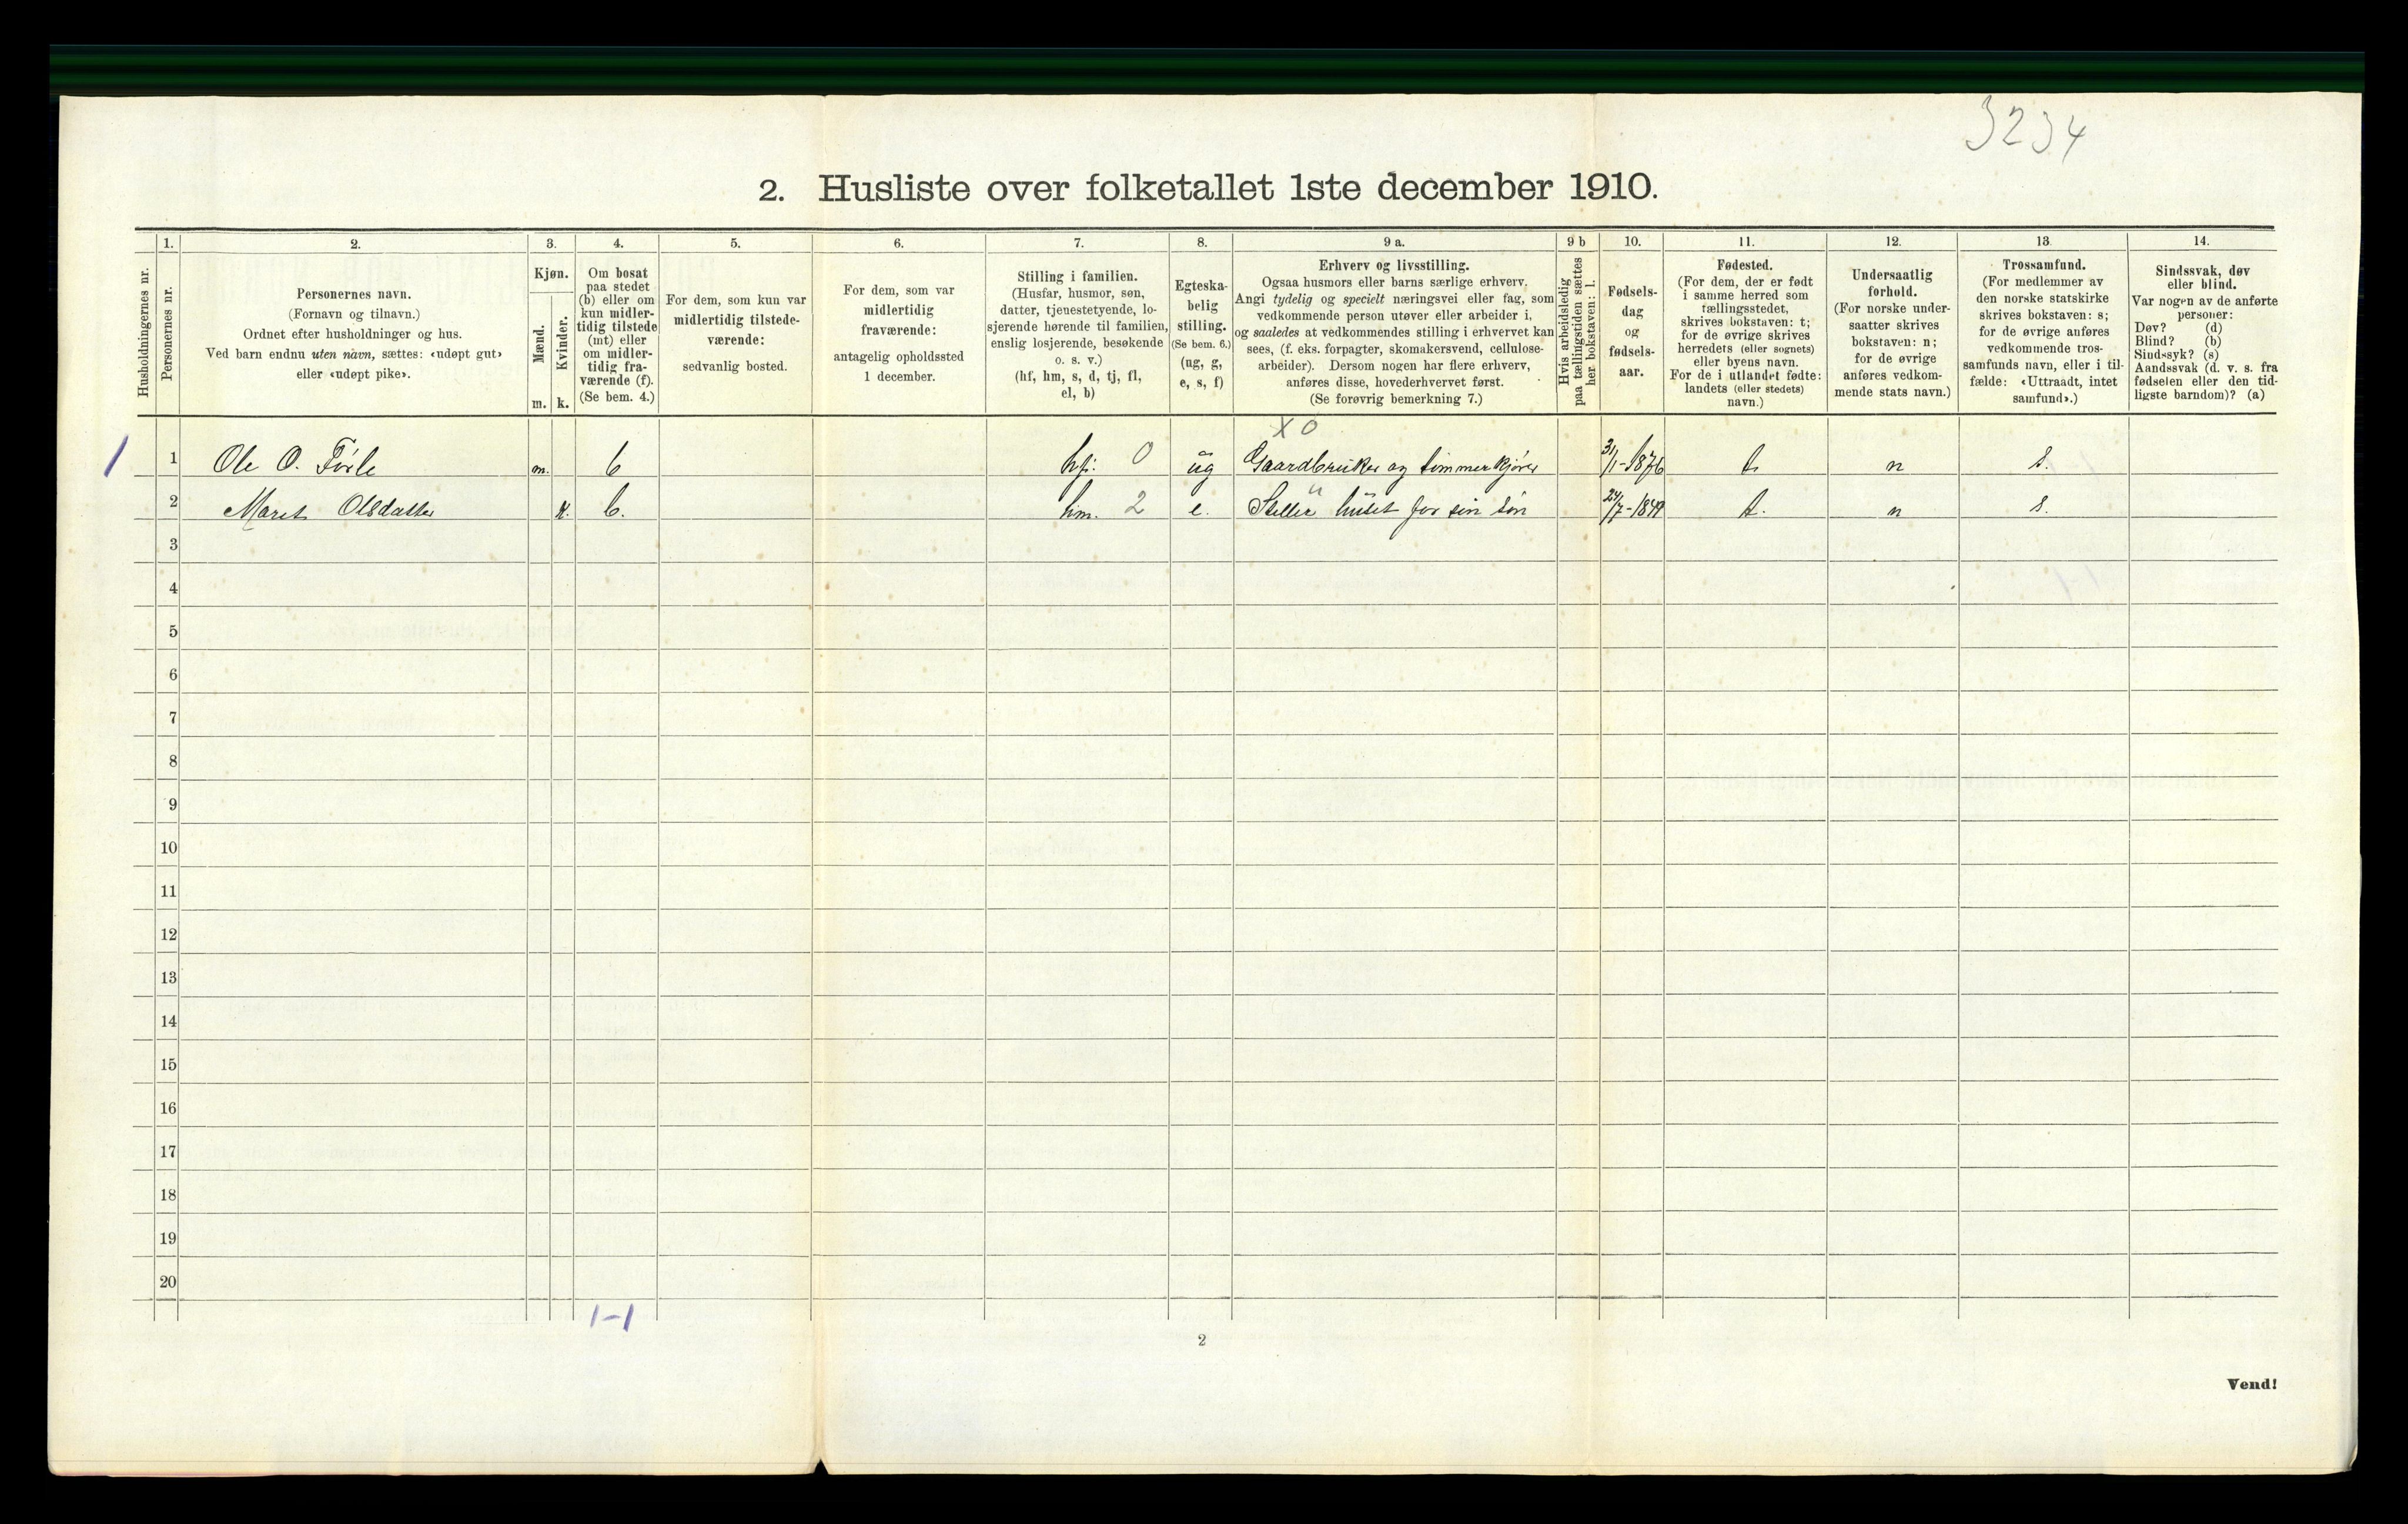 3234
2. Husliste over folketallet 1ste december 1910.
Husholdningernes nr.
1.
Personernes nr.
2.
Personernes navn.
(Fornavn og tilnavn.)
Ordnet efter husholdninger og hus.
Ved barn endnu uten navn, sættes: «udøpt gut»
eller «udøpt pike».
3.
Kjøn.
Mænd.
Kvinder.
m. k.
4.
Om bosat
paa stedet
(b) eller om
kun midler-
tidig tilstede
(mt) eller
om midler-
tidig fra-
værende (f).
(Se bem. 4.)
5.
For dem, som kun var
midlertidig tilstede-
værende:
sedvanlig bosted.
6.
For dem, som var
midlertidig
fraværende:
antagelig opholdssted
1 december.
7.
Stilling i familien.
(Husfar, husmor, søn,
datter, tjenestetyende, lo-
sjerende hørende til familien,
enslig losjerende, besøkende
o. s. v.)
(hf, hm, s, d, tj, fl,
el, b)
8.
Egteska-
belig
stilling.
(Se bem. 6.)
(ug, g,
e, s, f)
9 a.
Erhverv og livsstilling.
Ogsaa husmors eller barns særlige erhverv.
Angi tydelig og specielt næringsvei eller fag, som
vedkommende person utøver eller arbeider i,
og saaledes at vedkommendes stilling i erhvervet kan
sees, (f. eks. forpagter, skomakersvend, cellulose-
arbeider). Dersom nogen har flere erhverv,
anføres disse, hovederhvervet først.
(Se forøvrig bemerkning 7.)
9 b
Hvis arbeidsledig
paa tællingstiden sættes
her bokstaven: l.
10.
Fødsels-
dag
og
fødsels-
aar.
11.
Fødested.
(For dem, der er født
i samme herred som
tællingsstedet,
skrives bokstaven: t;
for de øvrige skrives
herredets (eller sognets)
eller byens navn.
For de i utlandet fødte:
landets (eller stedets)
navn.)
12.
Undersaatlig
forhold.
(For norske under-
saatter skrives
bokstaven: n;
for de øvrige
anføres vedkom-
mende stats navn.)
13
Trossamfund.
(For medlemmer av
den norske statskirke
skrives bokstaven: s;
for de øvrige anføres
vedkommende tros-
samfunds navn, eller i til-
fælde: «Uttraadt, intet
samfund».)
14.
Sindssvak, døv
eller blind.
Var nogen av de anførte
personer:
Døv? (d)
Blind? (b)
Sindssyk? (s)
Aandssvak (d. v. s. fra
fødselen eller den tid-
ligste barndom)? (a)
X 0
1 1 Ole O. Førle m. b hf. 0 ug Gaardbruker og tømmerkjører 31/1-1876 t. n s.
2 Marit Olsdatter k. b. hm. 2 e. Steller huset for sin søn n s.
3
4
5
6
7
8
9
10
11
12
13
14
15
16
17
18
19
20
1-1
2
Vend!